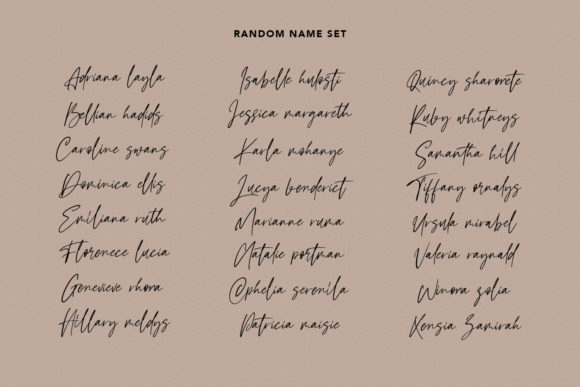 RANDOM NAME SET
Adriana layla
Bellian hadids
Caroline swans
Dominica ellis
Emiliana ruth
Florenece lucia
Genevieve rhora
Hillary meldys
Isabelle hubsti
Jessica margareth
Karla mohanye
Lucya benderict
Marianne ruma
Natalie portman
Ophelia serenila
Patricia maisie
Quincy sharorete
Ruby whitneys
Samantha hill
Tiffany ornalys
Ursula mirabel
Valeria raynald
Winora zolia
Xensia Zamirah